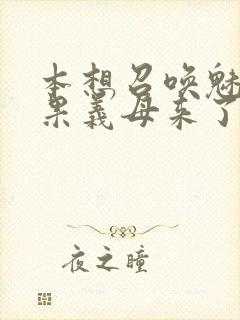 本想召唤魅
果义母来了
夜之瞳